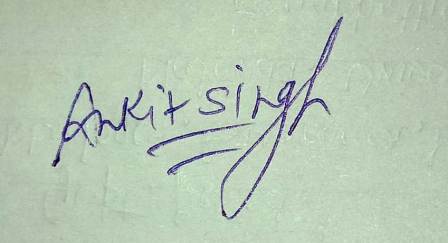 Ankit singh